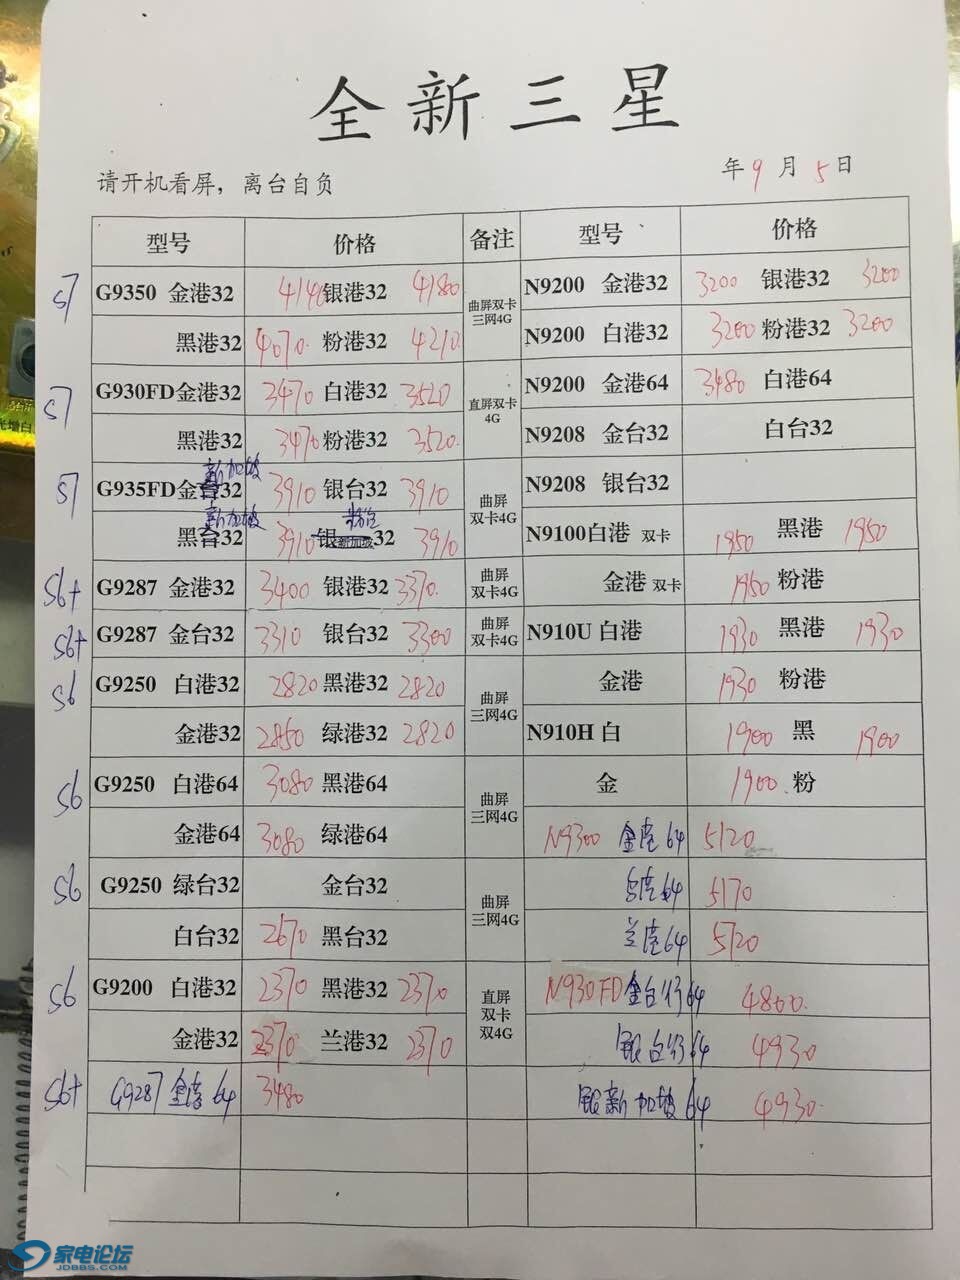 全新三星
请开机看屏，离台自负 年9月5日
型号 价格 备注 型号 价格
S7 G9350 金港32 4140 银港32 4180 曲屏双卡三网4G N9200 金港32 3200 银港32 3200
黑港32 4070 粉港32 4210 N9200 白港32 3200 粉港32 3200
S7 G930FD金港32 3470 白港32 3520 直屏双卡4G N9200 金港64 3480 白港64
黑港32 3470 粉港32 3520 N9208 金台32 白台32
新加坡
S7 G935FD金台32 3910 银台32 3910 曲屏双卡4G N9208 银台32
新加坡
黑台32 3910 银新加坡32 3910 N9100白港 双卡 1950 黑港 1950
S6+ G9287 金港32 3400 银港32 3370 曲屏双卡4G 金港 双卡 1950 粉港
S6+ G9287 金台32 3310 银台32 3300 曲屏双卡4G N910U 白港 1930 黑港 1930
S6 G9250 白港32 2820 黑港32 2820 曲屏三网4G 金港 1930 粉港
金港32 2850 绿港32 2820 N910H 白 1900 黑 1900
S6 G9250 白港64 3080 黑港64 曲屏三网4G 金 1900 粉
金港64 3080 绿港64 N9300 金港64 5120
S6 G9250 绿台32 金台32 曲屏三网4G 港64 5170
白台32 2670 黑台32 兰港64 5120
S6 G9200 白港32 2370 黑港32 2370 直屏双卡双4G N930FD金台行64 4800
金港32 2370 兰港32 2370 银台行64 4930
S6+ G9287金港64 3480 银新加坡64 4930
家电论坛
JDBBS.COM